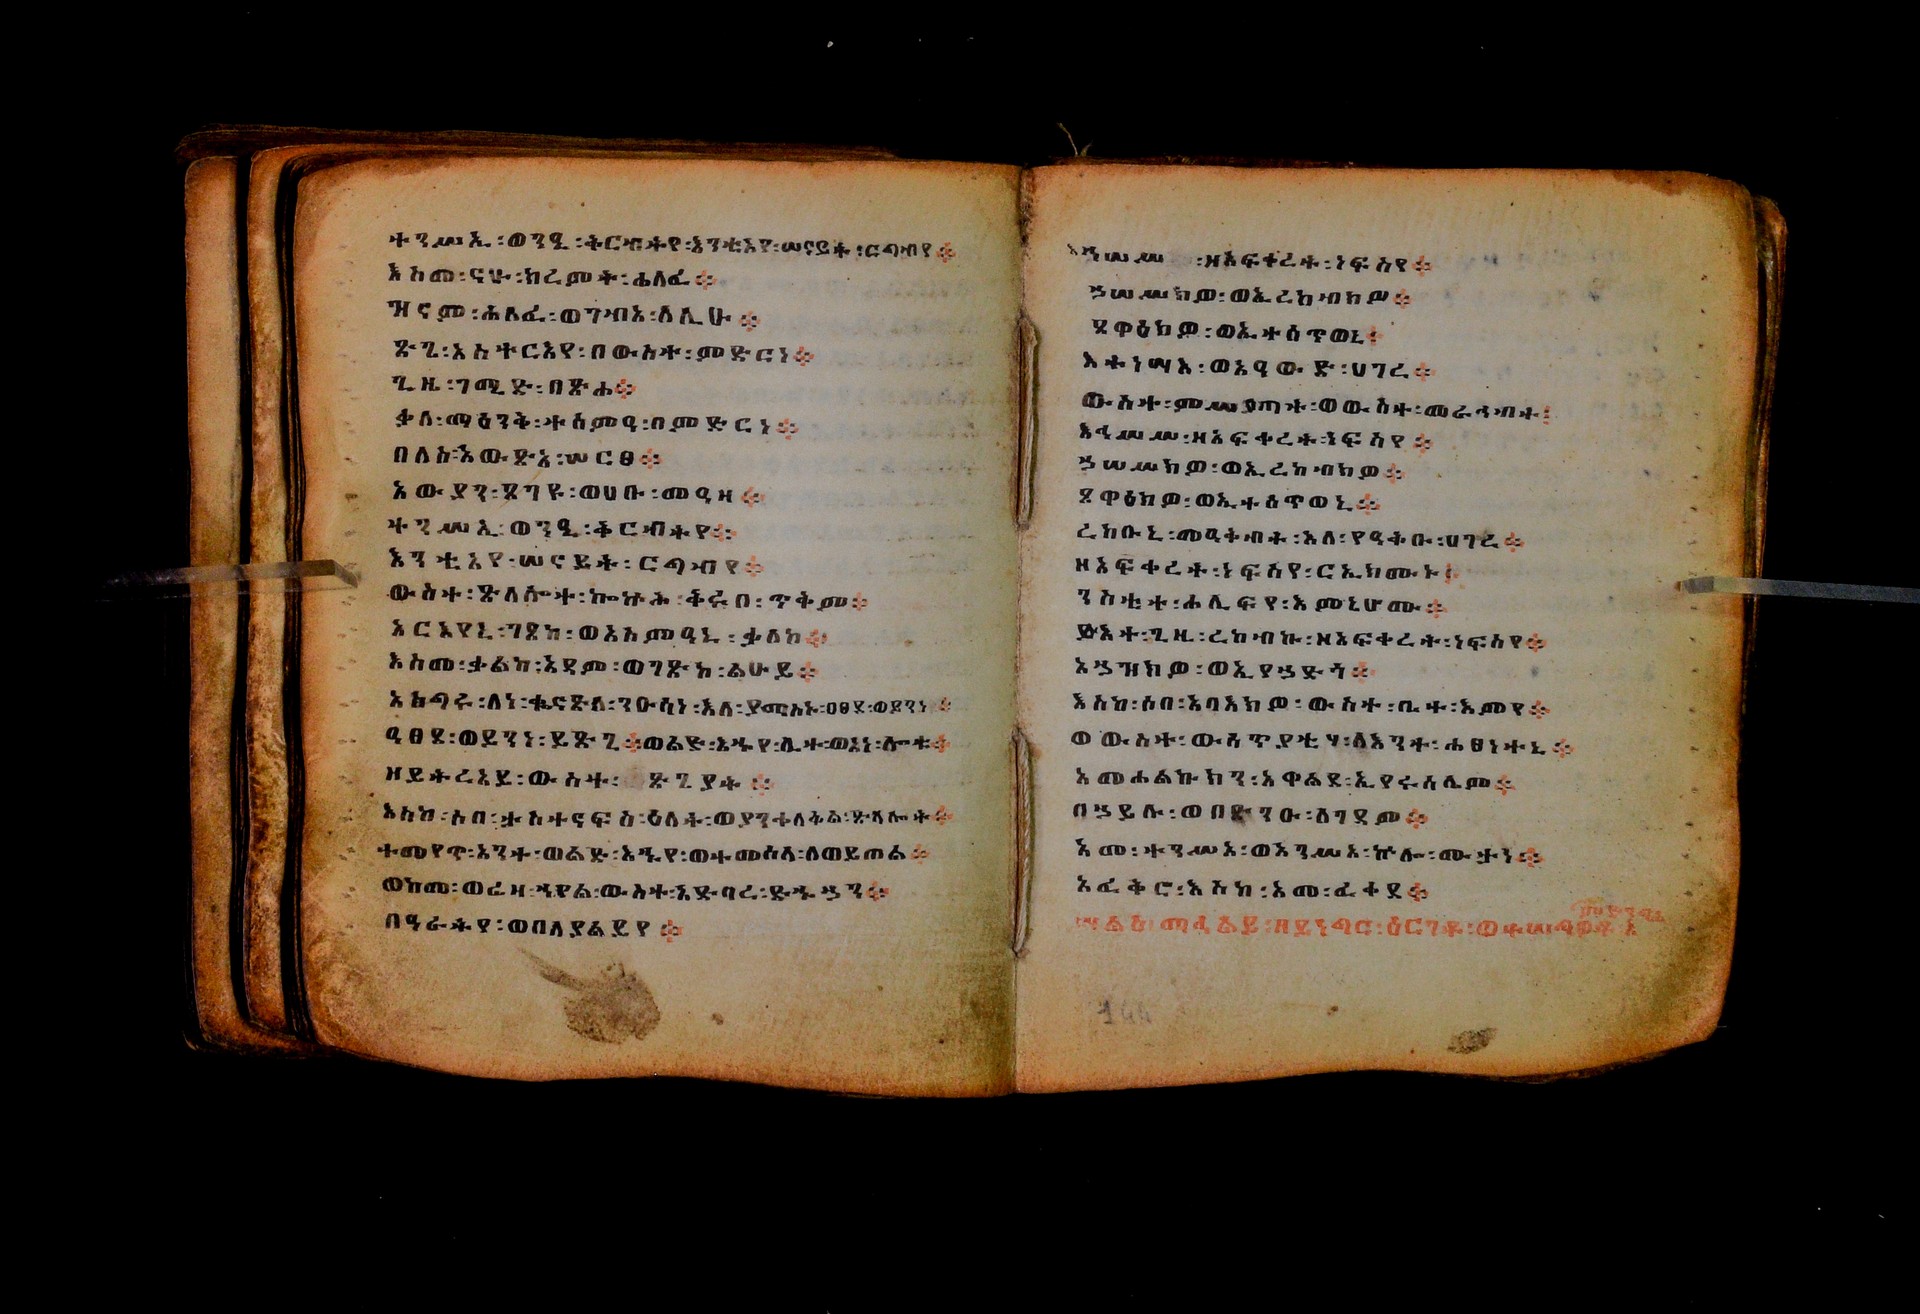 ተንሥኢ፡ ወንዒ፡ ቅርብትየ፡ እንቲአየ፡ ሠናይት፡ ርግብየ።
እስመ፡ ናሁ፡ ክረምት፡ ሐለፈ።
ዝናም፡ ሐለፈ፡ ወገብአ፡ ለሊሁ።
ጽጌ፡ አስተርአየ፡ በውስተ፡ ምድርነ።
ጊዜ፡ ገሚድ፡ በጽሐ።
ቃለ፡ ማዕንቅ፡ ተሰምዓ፡ በምድርነ።
በለስ፡ አውጽአ፡ ሠርፀ።
አውያን፡ ጸገዩ፡ ወሀቡ፡ መዓዛ።
ተንሥኢ፡ ወንዒ፡ ቅርብትየ።
እንቲአየ፡ ሠናይት፡ ርግብየ።
ውስተ፡ ጽላሎተ፡ ኰኵሕ፡ ቅሩበ፡ ጥቅም።
አርእየኒ፡ ገጸኪ፡ ወአስምዓኒ፡ ቃለኪ።
እስመ፡ ቃልኪ፡ አዳም፡ ወገጽኪ፡ ልሁይ።
አፅግሩ፡ ለነ፡ ቈናጽለ፡ ንዑሳነ፡ እለ፡ ያማስኑ፡ ዐፀደ፡ ወይንነ
ዓፀደ፡ ወይንነ፡ ይጽጊ። ወልድ፡ እኁየ፡ ሊተ፡ ወአነ፡ ሎቱ።
ዘይትረአይ፡ ውስተ፡ ጽጌያት።
እስከ፡ ሶበ፡ ታስተናፍስ፡ ዕለት፡ ወያንቀለቅል፡ ጽላሎት።
ተመየጥ፡ አንተ፡ ወልድ፡ እኁየ፡ ወተመሰላ፡ ለወይጠል።
ወከመ፡ ወሬዛ፡ ኀየል፡ ውስተ፡ አድባረ፡ ድኁኃን።
በዓራትየ፡ ወበለያልይየ።
ኀሠሥኩ፡ ዘአፍቀረት፡ ነፍስየ።
ኀሠሥክዎ፡ ወኢረከብክዎ።
ጸዋዕክዎ፡ ወኢተሰጥወኒ።
እትነሣእ፡ ወአዓውድ፡ ሀገረ።
ውስተ፡ ምሥያጣት፡ ወውስተ፡ መራኅብት።
እኅሥሥ፡ ዘአፍቀረት፡ ነፍስየ።
ኀሠሥክዎ፡ ወኢረከብክዎ።
ጸዋዕክዎ፡ ወኢተሰጥወኒ።
ረከቡኒ፡ መዓቅብት፡ እለ፡ የዓቅቡ፡ ሀገረ።
ዘአፍቀረት፡ ነፍስየ፡ ርኢክሙኑ።
ንስቲተ፡ ሐሊፍየ፡ እምኔሆሙ።
ይእተ፡ ጊዜ፡ ረከብኩ፡ ዘአፍቀረት፡ ነፍስየ።
አኀዝክዎ፡ ወኢየኀድጎ።
እስከ፡ ሶበ፡ አባእክዎ፡ ውስተ፡ ቤተ፡ እምየ።
ወውስተ፡ ውሳጥያቲሃ፡ ለእንተ፡ ሐፀነተኒ።
አመሐልኩክን፡ አዋልደ፡ ኢየሩሳሌም።
በኃይሉ፡ ወበጽንዑ፡ ለገዳም።
እመ፡ ተንሥአ፡ ወአንሥአ፡ ኵሎ፡ ሙታነ።
አፈቅሮ፡ እስከ፡ አመ፡ ፈቀደ።